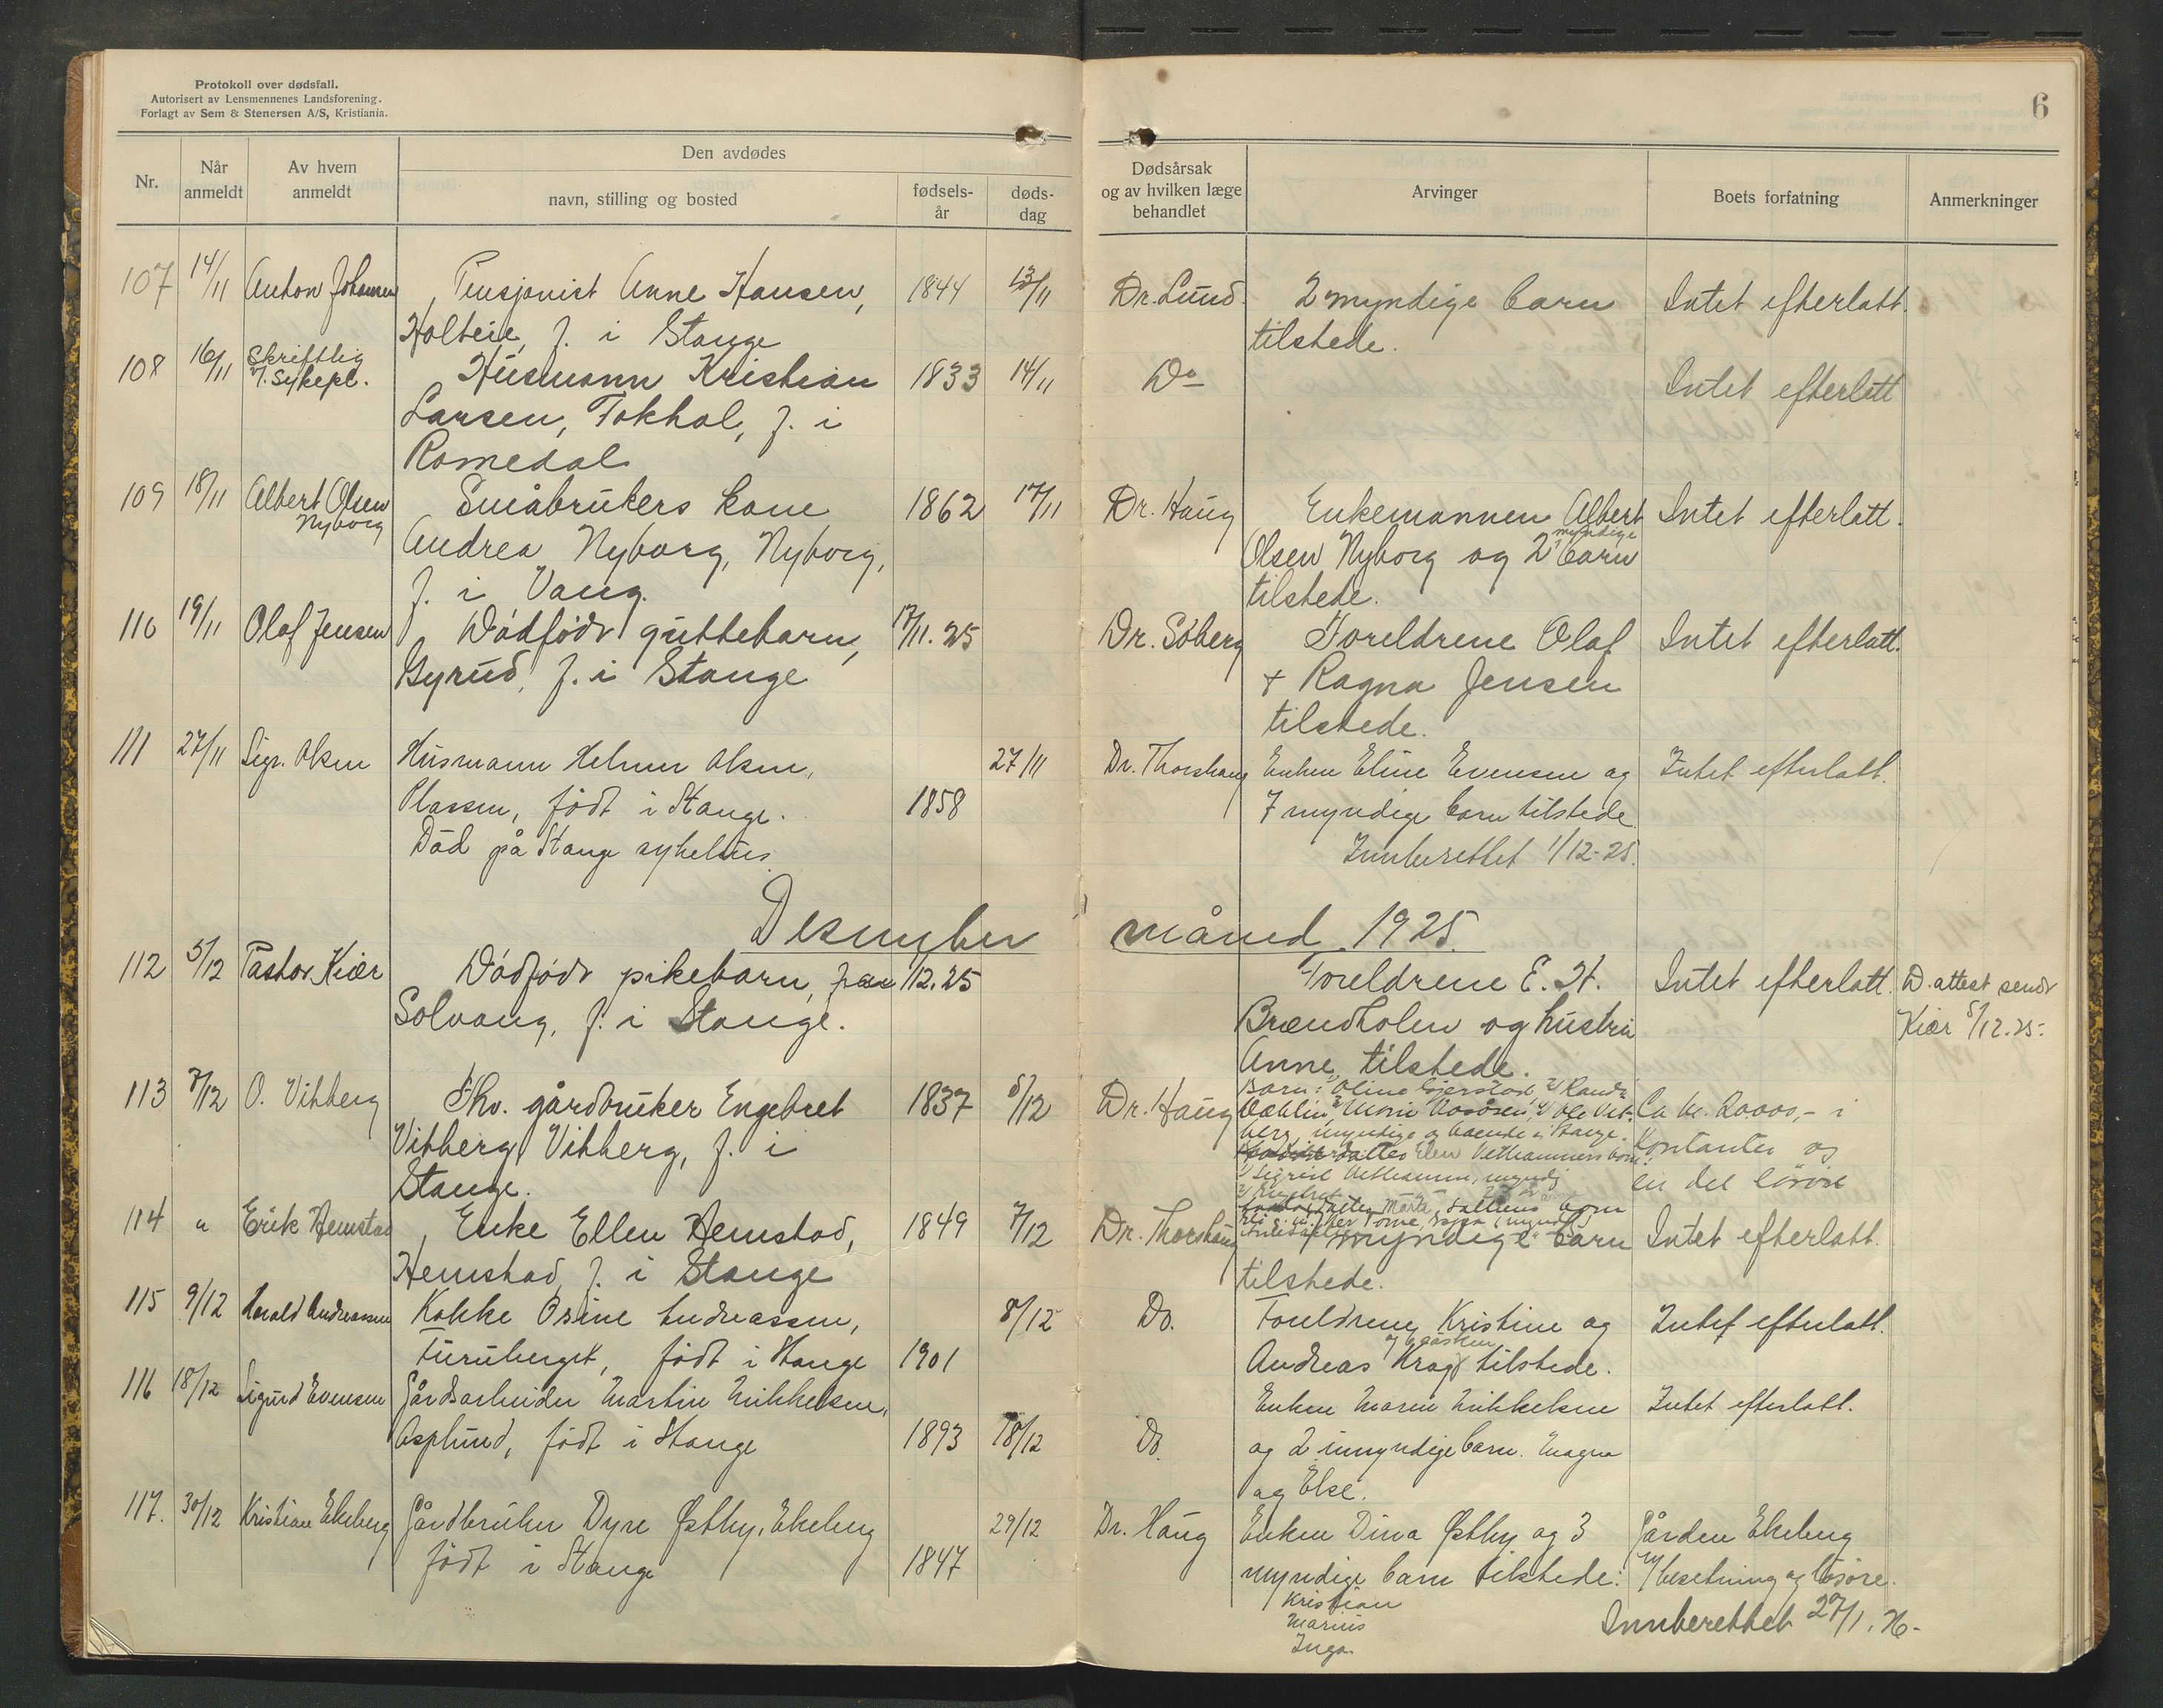 Protokoll over dødsfall.
Autorisert av Lensmennenes Landsforening.
Forlagt av Sem & Stenersen A/S, Kristiania.
6
Nr.
Når anmeldt
Av hvem anmeldt
Den avdødes
navn, stilling og bosted
fødsels-år
døds-dag
Dødsårsak og av hvilken læge behandlet
Arvinger
Boets forfatning
Anmerkninger
107 14/11 Anton Johansen Pensjonist Anne Hansen, 1844 13/11 Dr. Lund 2 myndige barn Intet efterlatt.
Holteie, f. i Stange tilstede.
108 16/11 Skriftlig Husmann Kristian 1833 14/11 Do Intet efterlatt
f. sykepl. Larsen, Tokhol, f. i
Romedal
109 18/11 Albert Olsen Småbrukers kone 1862 17/11 Dr. Haug Enkemannen Albert Intet efterlatt.
Nyborg Andrea Nyborg, Nyborg, Olsen Nyborg og 2 myndige barn
f. i Vang. tilstede.
110 19/11 Olaf Jensen Dødfødt guttebarn, 17/11.25 Dr. Søberg Foreldrene Olaf Intet efterlatt.
Byrud, f. i Stange + Ragna Jensen
tilstede.
111 27/11 Sigr. Olsen Husmann Helmer Olsen, 27/11 Dr. Thorshaug Enken Eline Evensen og Intet efterlatt.
Plassen, født i Stange. 1858 7 myndige barn tilstede
Død på Stange sykehus Innberettet 1/12-25.
Desember måned 1925.
112 5/12 Pastor Kiær Dødfødt pikebarn, 1/12.25 Foreldrene E. H. Intet efterlatt. D. attest sendt
Solvang, f. i Stange. Brændholen og hustru Kiær 5/12.25.
Anne, tilstede.
113 7/12 O. Vikberg Fhv. gårdbruker Engebret 1837 5/12 Dr. Haug Barn: 1/ Oline Gjerstad, 2/ Randi
Dæhlin, 3/ Marie 4/ Ole Vik- Ca kr. 20000,- i
Vikberg, Vikberg, f. i berg, myndige og boende i Stange. kontanter og
datter Elen Vethammers barn:
Stange. 1/ Sigrid Vethammer, myndig en del løsøre
datter Marta barn
114 " Erik Hemstad Enke Ellen Hemstad, 1849 7/12 Dr. Thorshaug myndige barn Intet efterlatt.
Hemstad, f. i Stange tilstede.
115 9/12 Harald Andreassen Kokke Osine Andreassen, 8/12 Do. Foreldrene Kristine og Intet efterlatt.
Furuberget, født i Stange 1901 Andreas tilstede.
116 18/12 Sigurd Evensen Gårdsarbeider Martin Mikkelsen, Enken Maren Mikkelsen Intet efterlatt.
Asplund, født i Stange 1893 18/12 Do. og 2 umyndige barn. Magna
og Else.
117. 30/12 Kristian Ekeberg Gårdbruker Dyre Østby, Ekeberg 29/12 Dr. Haug Enken Dina Østby og 3 Gården Ekeberg
født i Stange 1847 myndige barn tilstede: m/ besetning og løsøre.
Kristian
Marius
Inga
Innberettet 27/1.26.